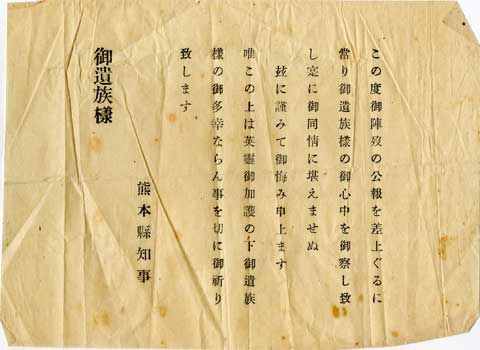 この度御陣歿の公報を差上ぐるに
當り御遺族様の御心中を御察し致
し寔に御同情に堪えませぬ
玆に謹みて御悔み申上ます
唯この上は英靈御加護の下御遺族
様の御多幸ならん事を切に御祈り
致します
熊本縣知事
御遺族様